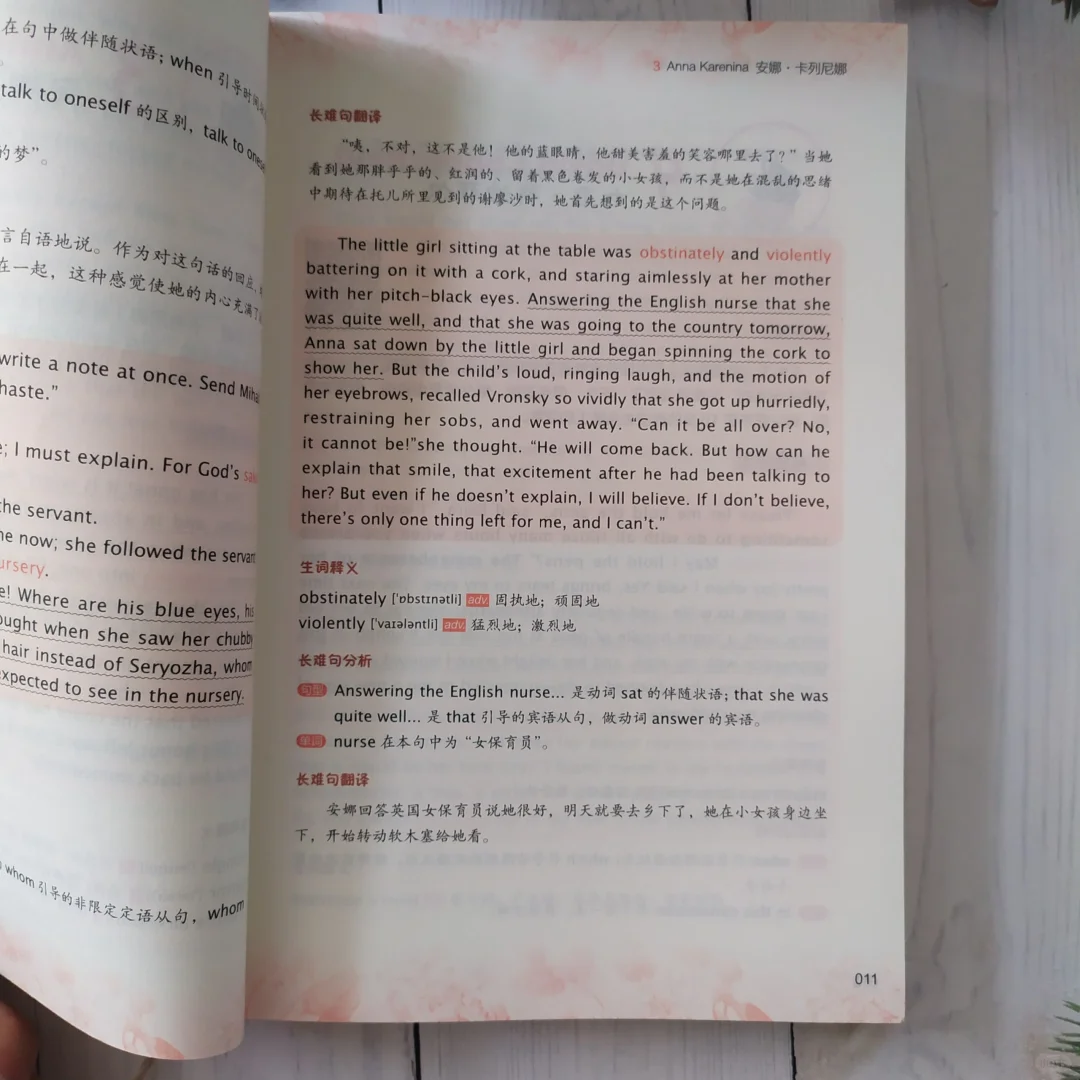 在句中做伴随状语；when 引导时间
talk to oneself 的区别，talk to
的梦”。
言自语地说。作为对这句话的回应，
在一起，这种感觉使她的内心充满了
write a note at once. Send
haste.”
e; I must explain. For God’s
the servant.
me now; she followed the servant
ursery.
e! Where are his blue eyes, his
ought when she saw her chubby
hair instead of Seryozha, whom
xpected to see in the nursery.
whom 引导的非限定定语从句，whom
3 Anna Karenina 安娜·卡列尼娜
长难句翻译
“咦，不对，这不是他！他的蓝眼睛，他甜美害羞的笑容哪里去了？”当她
看到她那胖乎乎的、红润的、留着黑色卷发的小女孩，而不是她在混乱的思绪
中期待在托儿所里见到的谢廖沙时，她首先想到的是这个问题。
The little girl sitting at the table was obstinately and violently
battering on it with a cork, and staring aimlessly at her mother
with her pitch-black eyes. Answering the English nurse that she
was quite well, and that she was going to the country tomorrow,
Anna sat down by the little girl and began spinning the cork to
show her. But the child’s loud, ringing laugh, and the motion of
her eyebrows, recalled Vronsky so vividly that she got up hurriedly,
restraining her sobs, and went away. “Can it be all over? No,
it cannot be!”she thought. “He will come back. But how can he
explain that smile, that excitement after he had been talking to
her? But even if he doesn’t explain, I will believe. If I don’t believe,
there’s only one thing left for me, and I can’t.”
生词释义
obstinately [ˈɒbstɪnətli] adv. 固执地；顽固地
violently [ˈvaɪələntli] adv. 猛烈地；激烈地
长难句分析
句型 Answering the English nurse... 是动词 sat 的伴随状语；that she was
quite well... 是 that 引导的宾语从句，做动词 answer 的宾语。
单词 nurse 在本句中为“女保育员”。
长难句翻译
安娜回答英国女保育员说她很好，明天就要去乡下了，她在小女孩身边坐
下，开始转动软木塞给她看。
011